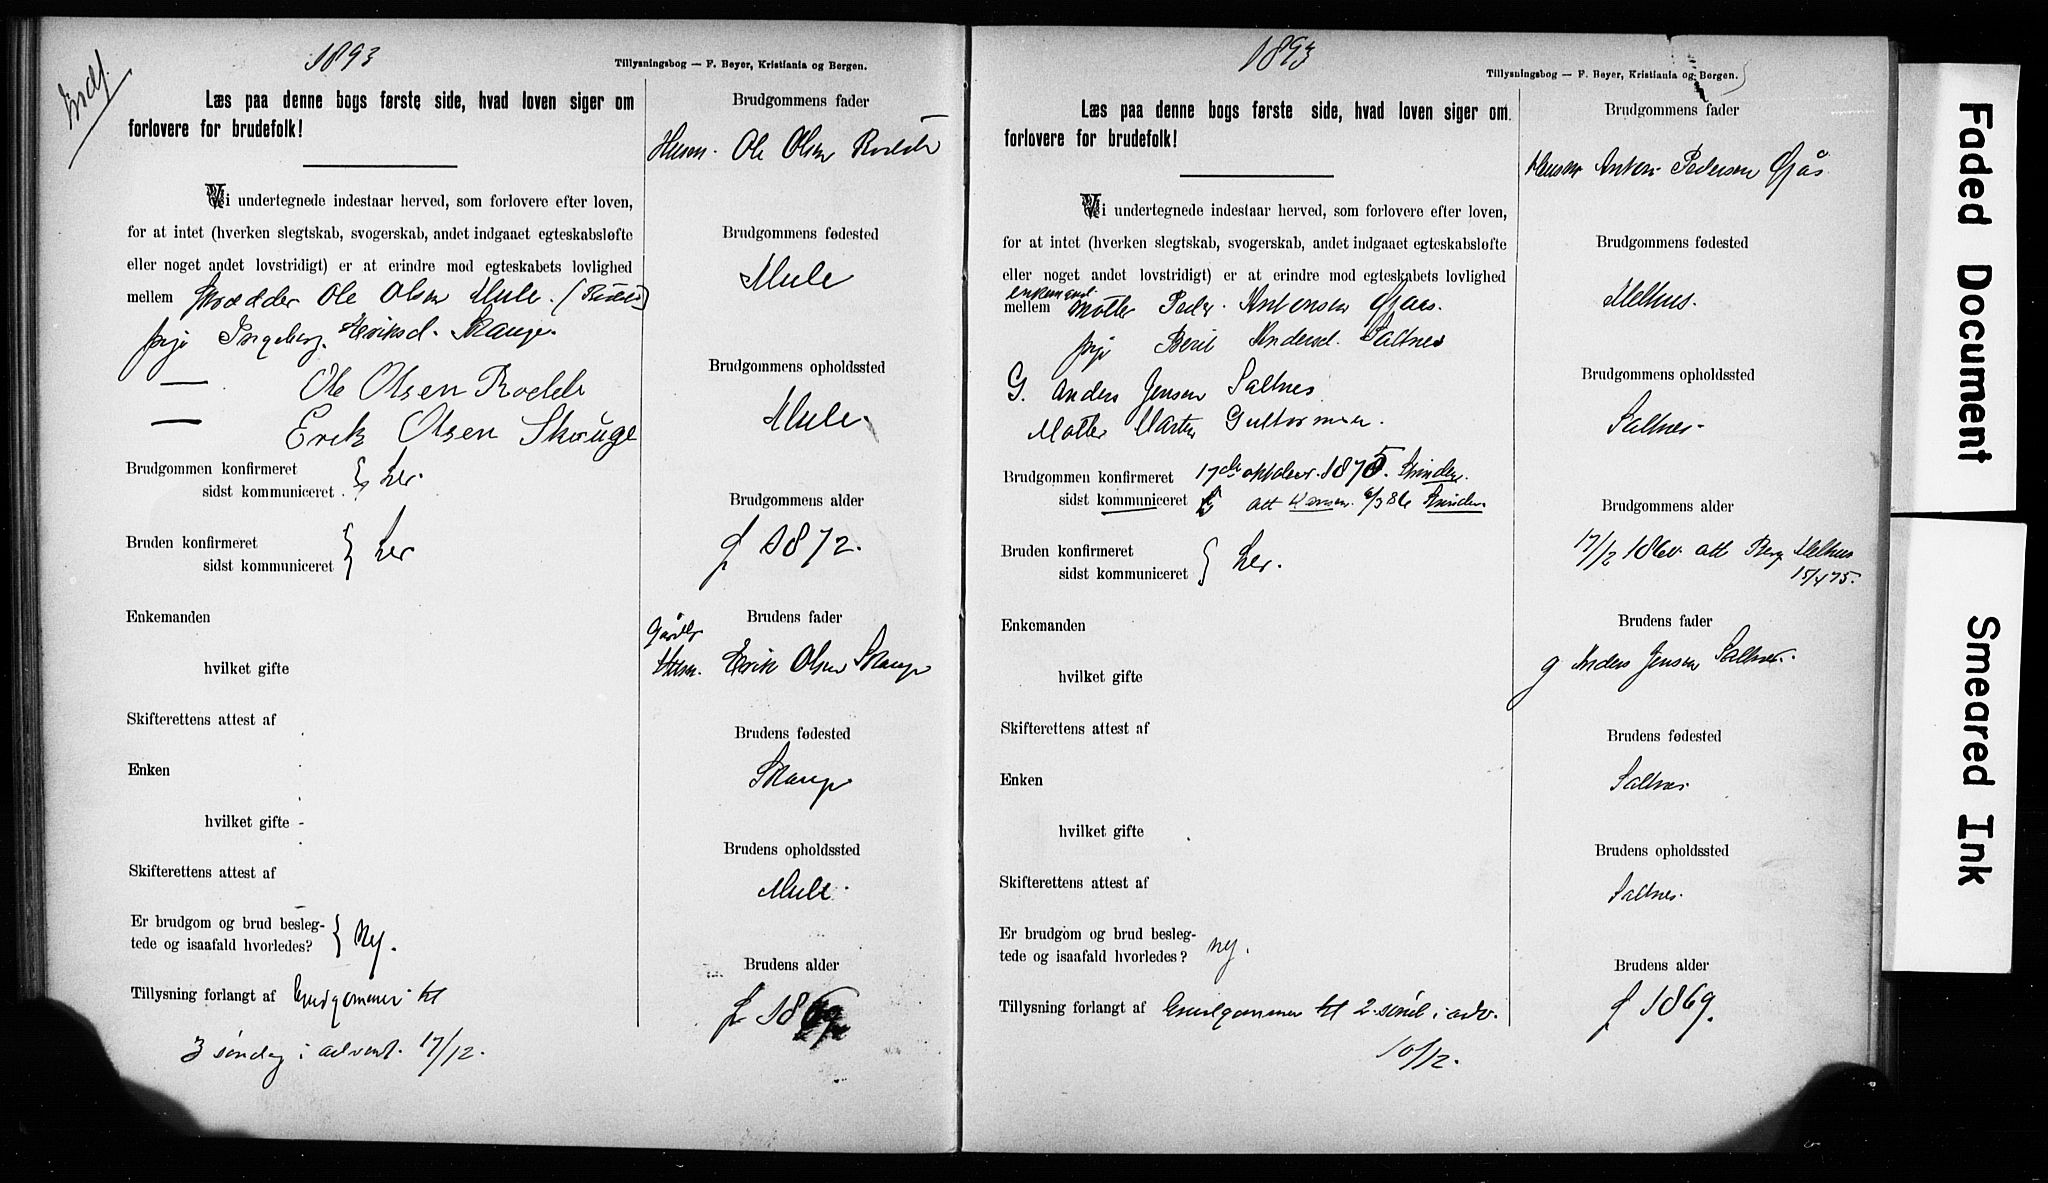 Indf.
1893
Tillysningsbog — F. Beyer, Kristiania og Bergen.
Læs paa denne bogs første side, hvad loven siger om
forlovere for brudefolk!
Vi undertegnede indestaar herved, som forlovere efter loven,
for at intet (hverken slegtskab, svogerskab, andet indgaaet egteskabsløfte
eller noget andet lovstridigt) er at erindre mod egteskabets lovlighed
mellem Skrædder Ole Olsen Mule.
pige Ingeborg Eriksd. Skauge.
— Ole Olsen Rodde
— Erik Olsen Skauge
Brudgommen konfirmeret
sidst kommuniceret } Ler.
Bruden konfirmeret
sidst kommuniceret } Ler
Enkemanden
hvilket gifte
Skifterettens attest af
Enken
hvilket gifte -
Skifterettens attest af
Er brudgom og brud besleg-
tede og isaafald hvorledes? } Nej.
Tillysning forlangt af Brudgommen til
3 søndag i advent. 17/12.
Brudgommens fader
Husm. Ole Olsen Rodde
Brudgommens fødested
Mule
Brudgommens opholdssted
Mule.
Brudgommens alder
f 1872.
Brudens fader
Gårdbr
Husm. Erik Olsen Skauge
Brudens fødested
Skauge
Brudens opholdssted
Mule.
Brudens alder
f 1869
1893
Tillysningsbog — F. Beyer, Kristiania og Bergen.
Læs paa denne bogs første side, hvad loven siger om
forlovere for brudefolk!
Vi undertegnede indestaar herved, som forlovere efter loven,
for at intet (hverken slegtskab, svogerskab, andet indgaaet egteskabsløfte
eller noget andet lovstridigt) er at erindre mod egteskabets lovlighed
ungkarl
mellem Møller Peder Antonsen Øfaas.
pige Berit Andersd. Saltnes
G. Anders Jensen Saltnes
Møller Martin Guttormsen.
Brudgommen konfirmeret 17de oktober 1875. Strinden.
sidst kommuniceret att 6/3 86 Strinden
Bruden konfirmeret
sidst kommuniceret } Ler.
Enkemanden
hvilket gifte
Skifterettens attest af
Enken
hvilket gifte
Skifterettens attest af
Er brudgom og brud besleg-
tede og isaafald hvorledes? nej.
Tillysning forlangt af Brudgommen til 2. sønd i adv.
10/12.
Brudgommens fader
Husm Anton Pedersen Øfås.
Brudgommens fødested
Melhus.
Brudgommens opholdssted
Saltnes.
Brudgommens alder
17/12 1860 att Berg Melhus
15/4 75.
Brudens fader
g Anders Jensen Saltnes.
Brudens fødested
Saltnes
Brudens opholdssted
Saltnes.
Brudens alder
f 1869.
Faded Document
Smeared Ink